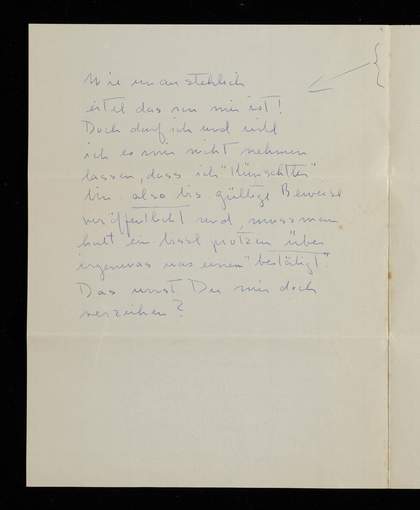 Wie unausstehlich
eitel das von mir ist!
Doch darf ich und will
ich es mir nicht nehmen
lassen, dass ich "Künschtler"
bin also bis gültige Beweise
veröffentlicht sind, muss man
halt ein bissl protzen über
irgenwas was einen "bestätigt".
Das wirst Du mir doch
verzeihen?